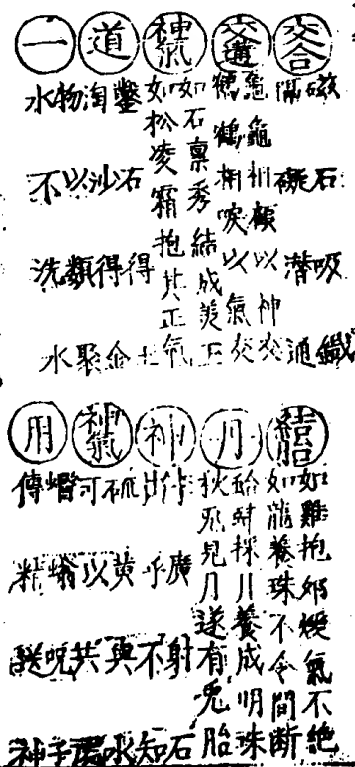 交合
磁石吸鐵
隔礙潛通
交遘
龜龜相顧以神交
鶴鶴相唳以氣交
神氣
如石稟秀結成美玉
如松凌霜抱其正氣
道
鑿石得玉
淘沙得金
一
物以類聚
水不洗水
結胎
如雞抱卵煖氣不絕
如龍養珠不令間斷
月
蚌採月養成明珠
秋兎見月遂有兎胎
神
廣射石
出乎不知
神氣
黃與水
可以共
用
螉咒子
傳精送神